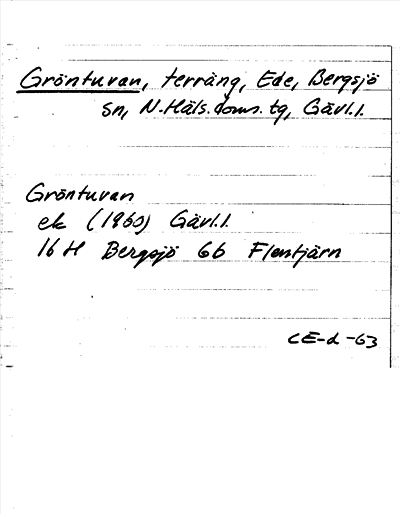 Gröntuvan, terräng, Ede, Bergsjö
sn, N. Häls. doms. tg, Gävl.l.
Gröntuvan
ek (1960) Gävl.l.
16 H Bergsjö 6b Flentjärn
CE-d -63